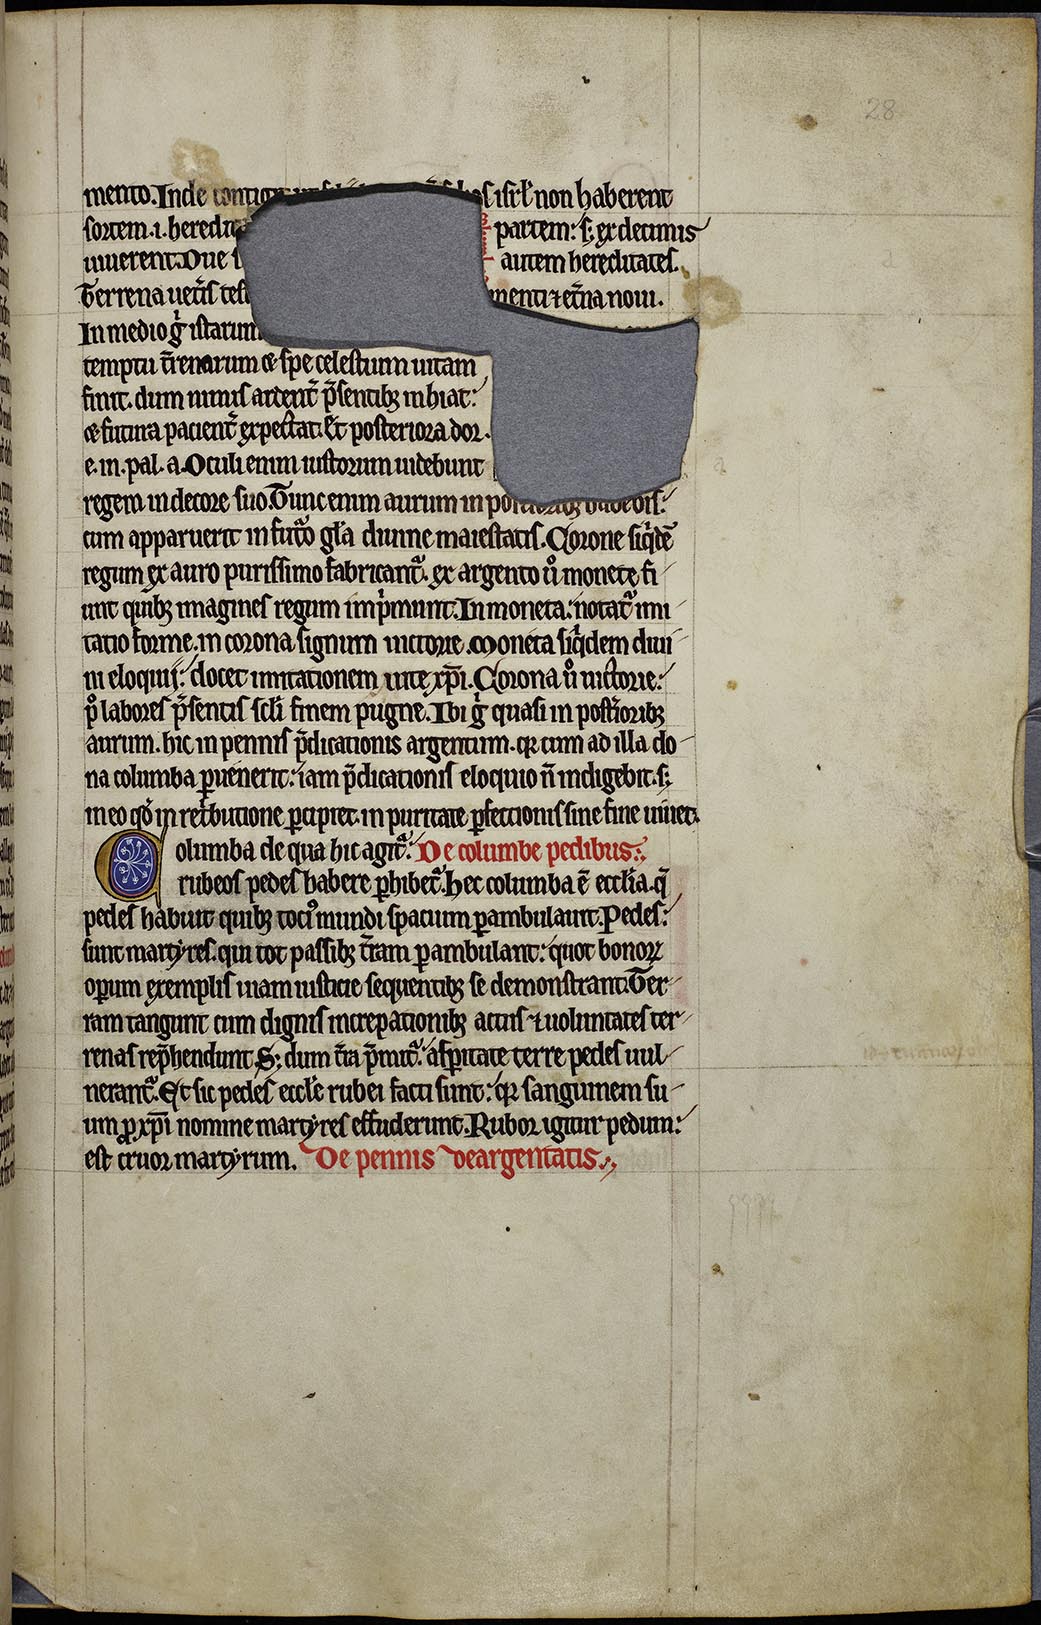 28
mento. Inde contigit isrl̄ non haberent
sortem .i. heredit partem: s; ex decimis
uiuerent. Due s autem hereditates.
Terrena uet̄is tes menti ⁊ et̄na noui.
In medio g̊ istarum
temptu t̄renarum & spe celestium uitam
finit. dum nimis ardent̾ p̄sentib; inhiat:
& futura pacient̾ expectat. Et posteriora dor.
e. in. pal. a. Oculi enim iustorum uidebunt
regem in decore suo. Tunc enim aurum in posteriorib; habebis:
cum apparuerit in fut̾o gl̄a diuine maiestatis. Corone siq̇dē
regum ex auro purissimo fabricant̾. ex argento u̾o monete fi
unt quib; imagines regum imp̾munt. In moneta: notat̾ imi
tatio forme. in corona signum uictorie. Moneta siq̇dem diui
ni eloquij: docet imitationem uite xp̄i. Corona u̾o uictorie:
p̾ labores p̄sentis sc̄li finem pugne. Ibi g̊ quasi in post̾iorib;
aurum. hic in pennis p̄dicationis argentum. qꝛ cum ad illa do
na columba ꝑuenerit: iam p̄dicationis eloquio n̄ indigebit. s;
in eo qd̾ in ret̾butione ꝑcipiet. in puritate ꝑfectionis sine fine uiuet.
Columba de qua hic agit̾: De columbe pedibus:
rubeos pedes habere ꝑhibet̾. Hec columba ē eccl̄ia. q̄
pedes habuit quib; toci⁹ mundi spacium ꝑambulauit. Pedes:
sunt martyres. qui tot passib; t̄ram ꝑambulant: quot bonoꝝ
oꝑum exemplis uiam iusticie sequentib; se demonstrant. Ter
ram tangunt cum dignis increpationib; actus ⁊ uoluntates ter
renas rep̄hendunt. S; dum t̄ra p̄mit̾: asꝑitate terre pedes uul
nerant̾. Et sic pedes eccl̄e rubei facti sunt: qꝛ sanguinem su
um ꝓ xp̄i nomine martyres effuderunt. Rubor igitur pedum:
est cruor martyrum. De pennis deargentatis.